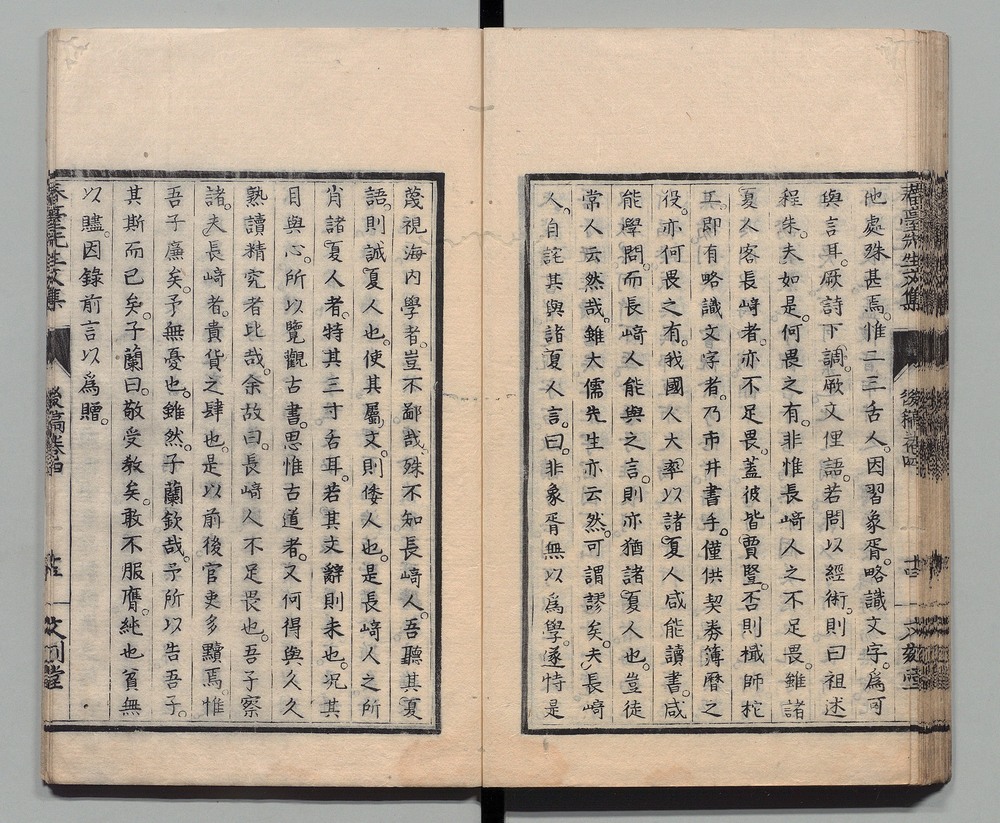 他處殊甚焉。惟二三舌人。因習象胥。略識文字。爲可
與言耳。厥詩下調。厥文俚語。若問以經術。則曰祖述
程朱。夫如是。何畏之有。非惟長﨑人之不足畏。雖諸
夏人客長﨑者。亦不足畏。蓋彼皆賈豎。否則檝師柁
工。即有略識文字者。乃市井書手。僅供契券簿曆之
役。亦何畏之有。我國人大率以諸夏人咸能讀書。咸
能學問。而長﨑人能與之言。則亦猶諸夏人也。豈徒
常人云然哉。雖大儒先生亦云然。可謂謬矣。夫長﨑
人。自詫其與諸夏人言。曰。非象胥無以爲學。遂恃是
蔑視海内學者。豈不鄙哉。殊不知長﨑人。吾聽其夏
語。則誠夏人也。使其屬文。則倭人也。是長﨑人之所
肖諸夏人者。特其三寸舌耳。若其文辭則未也。况其
目與心。所以覽觀古書。思惟古道者。又何得與久久
熟讀精究者比哉。余故曰。長﨑人不足畏也。吾子察
諸。夫長﨑者。貴貨之肆也。是以前後官吏多黷焉。惟
吾子廉矣。予無憂也。雖然。子蘭欽哉。予所以告吾子。
其斯而已矣。子蘭曰。敬受教矣。敢不服膺。純也貧無
以贐。因錄前言以爲贈。
春臺先生文集
後稿卷四